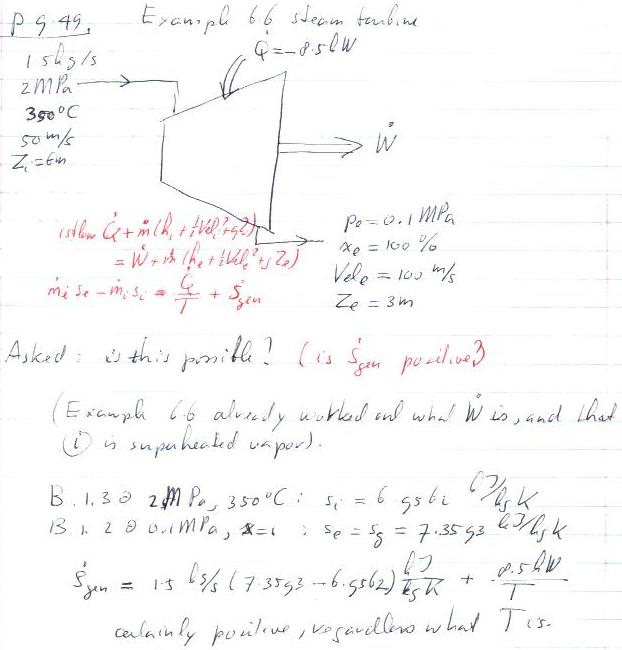 P 9.49.
Example 6.6 steam turbine
Q̇ = -8.5 kW
1.5 kg/s
2 MPa
350°C
50 m/s
Zᵢ = 6m
Ẇ
1st law Q̇ + ṁ (hᵢ + ½Velᵢ² + gZᵢ)
= Ẇ + ṁ (hₑ + ½Velₑ² + gZₑ)
ṁᵢ sₑ - ṁᵢ sᵢ = Q̇/T + Ṡgen
Pₑ = 0.1 MPa
xₑ = 100 %
Velₑ = 100 m/s
Zₑ = 3m
Asked: is this possible? (is Ṡgen positive?)
(Example 6.6 already worked out what Ẇ is, and that
(i) is superheated vapor).
B.1.3 @ 2 MPa, 350°C : sᵢ = 6.9562 kJ/kg K
B 1.2 @ 0.1MPa, x=1 : sₑ = s_g = 7.3593 kJ/kg K
Ṡgen = 1.5 kg/s (7.3593 - 6.9562) kJ/kg K + 8.5 kW/T
certainly positive, regardless what T is.